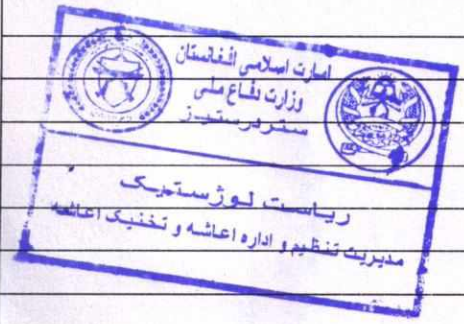 امارت اسلامی افغانستان
وزارت دفاع ملی
ستردرستیز
ریاست لوژستیک
مدیریت تنظیم و اداره اعاشه و تخنیک اعاشه